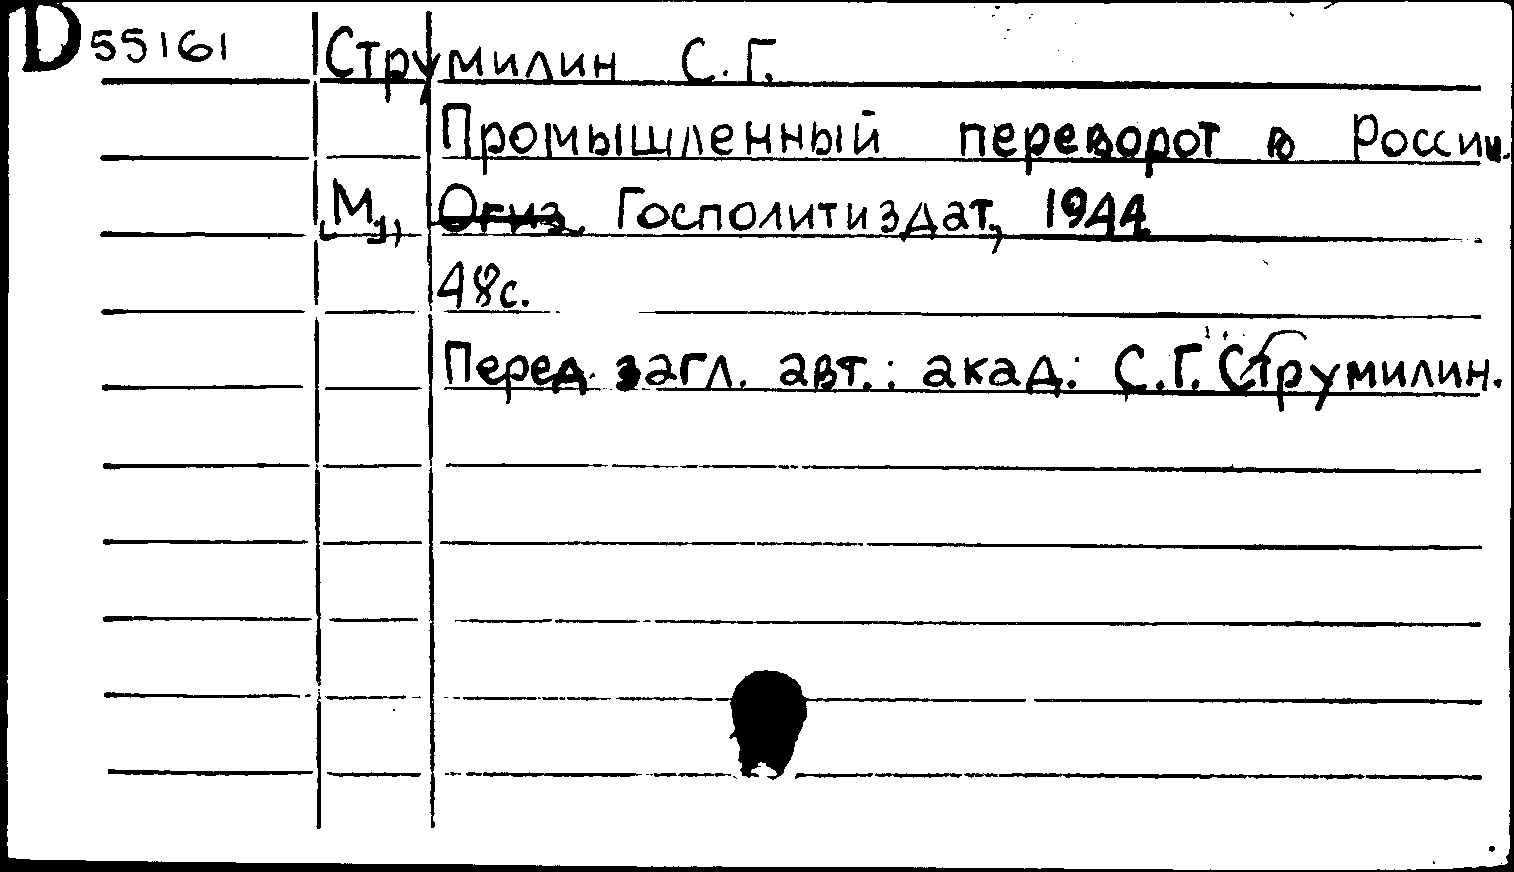 D 55161 Струмилин С. Г.
Промышленный переворот в России.
[М.], Огиз, Госполитиздат, 1944
48с.
Перед загл. авт.: акад.: С.Г. Струмилин.